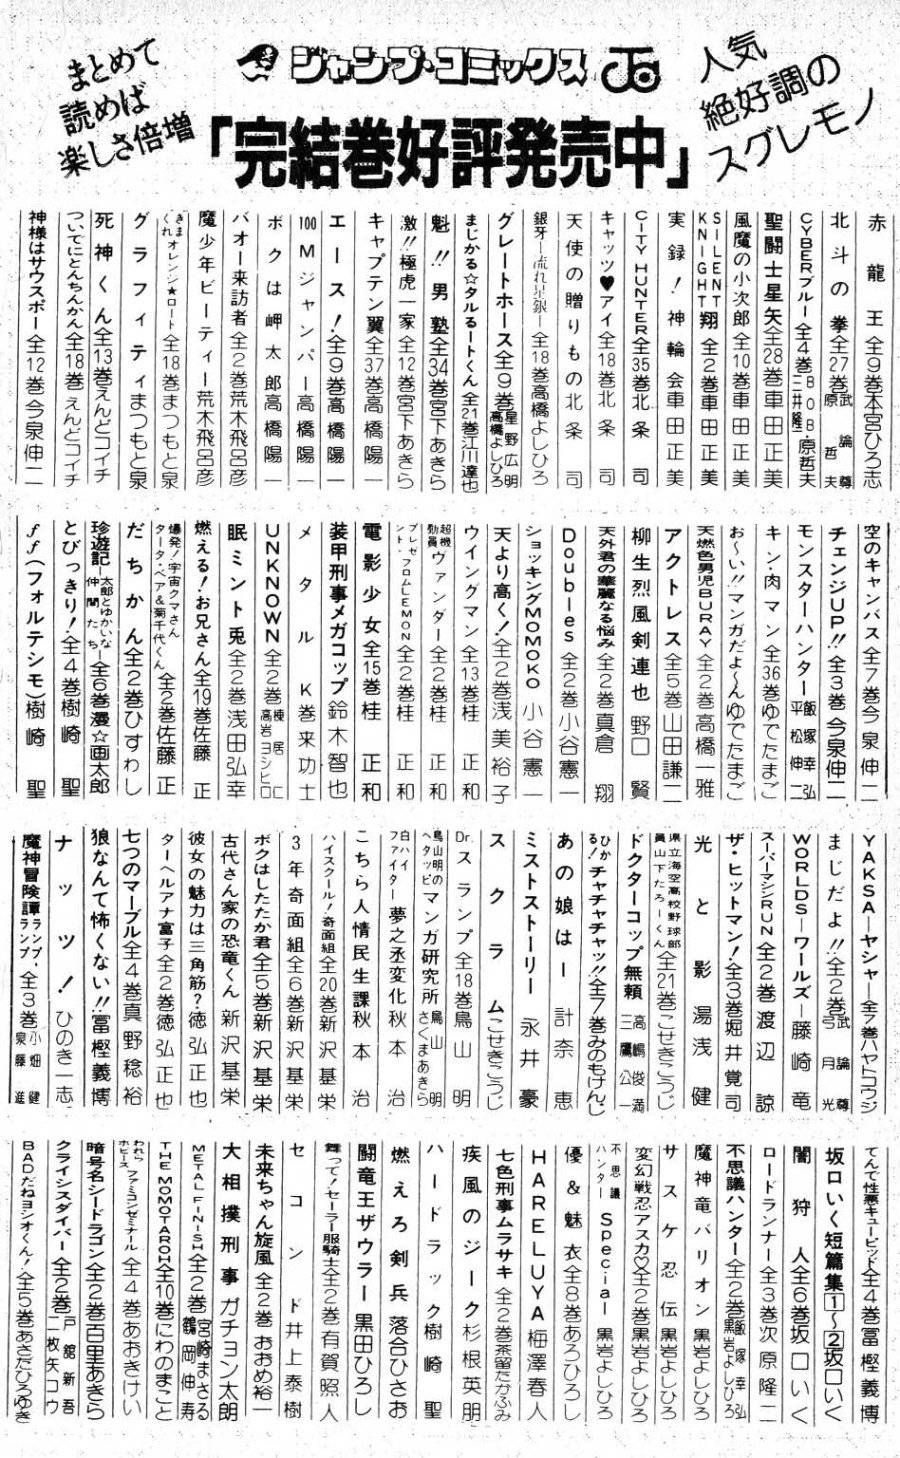 まとめて
読めば
楽しさ倍増
ジャンプ・コミックス
人気
絶好調の
スグレモノ
「完結巻好評発売中」
赤龍王 全9巻 本宮ひろ志
北斗の拳 全27巻 武論尊 原哲夫
CYBERブルー 全4巻 BOB・原哲夫 三井隆一
聖闘士星矢 全28巻 車田正美
風魔の小次郎 全10巻 車田正美
SILENT KNIGHT 翔 全2巻 車田正美
実録!神輪会 車田正美
CITY HUNTER 全35巻 北条司
キャッツ♥アイ 全18巻 北条司
天使の贈りもの 北条司
銀牙―流れ星 銀― 全18巻 高橋よしひろ
グレートホース 全9巻 星野広明 高橋よしひろ
まじかる☆タルるートくん 全21巻 江川達也
魁!!男塾 全34巻 宮下あきら
激!!極虎一家 全12巻 宮下あきら
キャプテン翼 全37巻 高橋陽一
エース! 全9巻 高橋陽一
100Mジャンパー 高橋陽一
ボクは岬太郎 高橋陽一
バオー来訪者 全2巻 荒木飛呂彦
魔少年ビーティー 荒木飛呂彦
きまぐれオレンジ★ロード 全18巻 まつもと泉
グラフィティ まつもと泉
死神くん 全13巻 えんどコイチ
ついでにとんちんかん 全18巻 えんどコイチ
神様はサウスポー 全12巻 今泉伸二
空のキャンバス 全7巻 今泉伸二
チェンジUP!! 全3巻 今泉伸二
モンスターハンター 飯塚幸弘 平松伸二
キン肉マン 全36巻 ゆでたまご
お〜い!!マンガだよ〜ん ゆでたまご
天燃色男児BURAY 全2巻 高橋一雅
アクトレス 全5巻 山田謙二
柳生烈風剣連也 野口賢
天外君の華麗なる悩み 全2巻 真倉翔
Doubles 全2巻 小谷憲一
ショッキングMOMOKO 小谷憲一
天より高く! 全2巻 浅美裕子
ウイングマン 全13巻 桂正和
超機動員ヴァンダー 全2巻 桂正和
プレゼント・フロムLEMON 全2巻 桂正和
電影少女 全15巻 桂正和
装甲刑事メガコップ 鈴木智也
メタルK 巻来功士
UNKNOWN 全2巻 棟居仁 高岩ヨシヒロ
眠兎 全2巻 浅田弘幸
燃える!お兄さん 全19巻 佐藤正
爆発!宇宙クマさん タータ・ベア&菊千代くん 全2巻 佐藤正
だちかん 全2巻 ひすわし
珍遊記―太郎とゆかいな仲間たち― 全6巻 漫☆画太郎
とびっきり! 全4巻 樹崎聖
ff(フォルテシモ) 樹崎聖
YAKSA―ヤシャ― 全7巻 ハヤトコウジ
まじだよ!! 全2巻 武論尊 弓月光
WORLDS―ワールズ― 藤崎竜
スーパーマシンRUN 全2巻 渡辺諒
ザ・ヒットマン! 全3巻 堀井覚司
光と影 湯浅健
県立海空高校野球部員山下たろーくん 全21巻 こせきこうじ
ドクターコップ無頼 高嶋俊満 三鷹公一
ひかるチャチャチャッ!! 全7巻 みのもけんじ
あの娘は― 計奈恵
ミストストーリー 永井豪
スクラム こせきこうじ
Dr.スランプ 全18巻 鳥山明
鳥山明のヘタッピマンガ研究所 鳥山明 さくまあきら
白バイファイター 夢之丞変化 秋本治
こちら人情民生課 秋本治
ハイスクール!奇面組 全20巻 新沢基栄
3年奇面組 全6巻 新沢基栄
ボクはしたたか君 全5巻 新沢基栄
古代さん家の恐竜くん 新沢基栄
彼女の魅力は三角筋? 徳弘正也
ターヘルアナ富子 全2巻 徳弘正也
七つのマーブル 全4巻 真野稔裕
狼なんて怖くない!! 冨樫義博
ナッツ! ひのき一志
魔神冒険譚ランプ・ランプ 全3巻 小畑健 泉藤進
てんで性悪キューピッド 全4巻 冨樫義博
坂口いく短篇集1〜2 坂口いく
闇狩人 全6巻 坂口いく
ロードランナー 全3巻 次原隆二
不思議ハンター 全2巻 飯塚幸弘 黒岩よしひろ
魔神竜バリオン 黒岩よしひろ
サスケ忍伝 黒岩よしひろ
変幻戦忍アスカ♡ 全2巻 黒岩よしひろ
不思議ハンターSpecial 黒岩よしひろ
優&魅衣 全8巻 あろひろし
HARELUYA 梅澤春人
七色刑事ムラサキ 全2巻 茶留たかふみ
疾風のジーク 杉根英朋
ハードラック 樹崎聖
燃えろ剣兵 落合ひさお
闘竜王ザウラー 黒田ひろし
舞って!セーラー服騎士 全2巻 有賀照人
セコンド 井上泰樹
未来ちゃん旋風 全2巻 おおめ裕一
大相撲刑事 ガチョン太朗
METAL FINISH 全2巻 宮崎まさる 鶴岡伸寿
THE MOMOTAROH 全10巻 にわのまこと
われらホビーズファミコンゼミナール 全4巻 あおきけい
暗号名シードラゴン 全2巻 百里あきら
クライシスダイバー 全2巻 戸舘新吾 二枚矢コウ
BADだねヨシオくん! 全5巻 あさだひろゆき